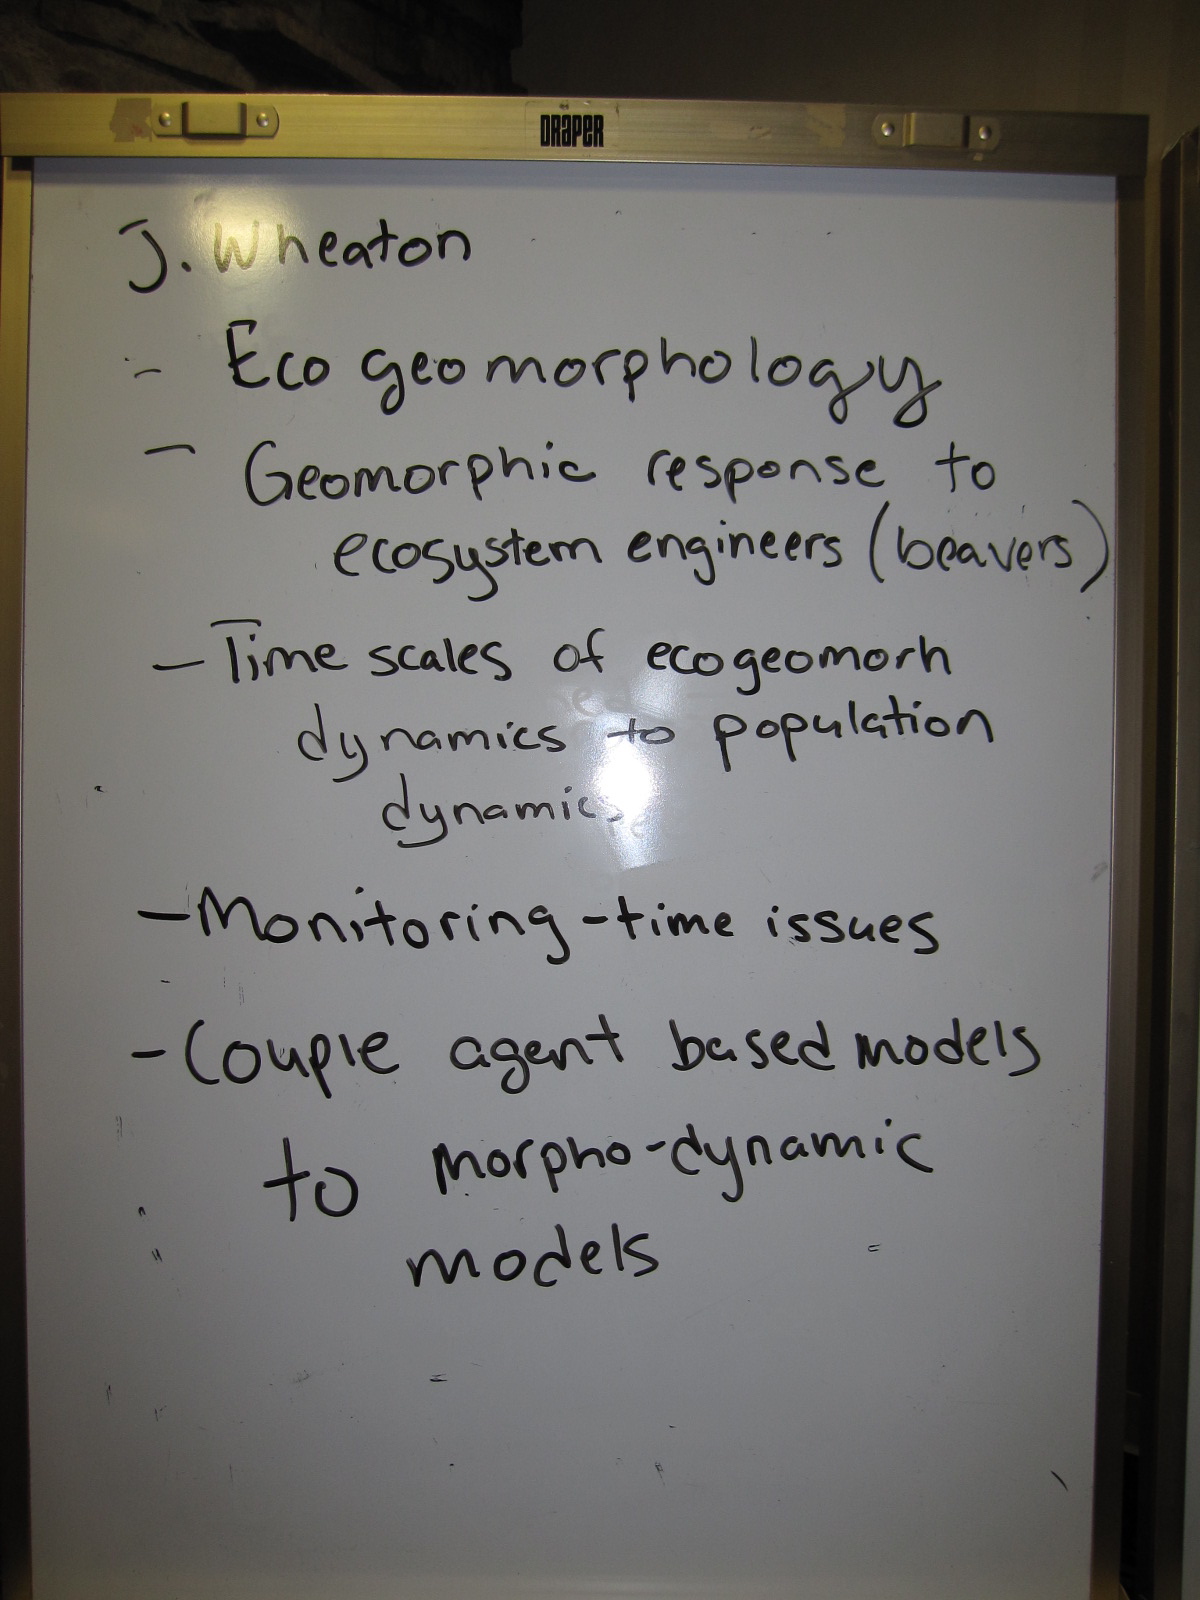 DRAPER
J. Wheaton
- Eco geomorphology
- Geomorphic response to
ecosystem engineers (beavers)
- Time scales of ecogeomorh
dynamics to population
dynamics
- Monitoring - time issues
- Couple agent based models
to morpho-dynamic
models